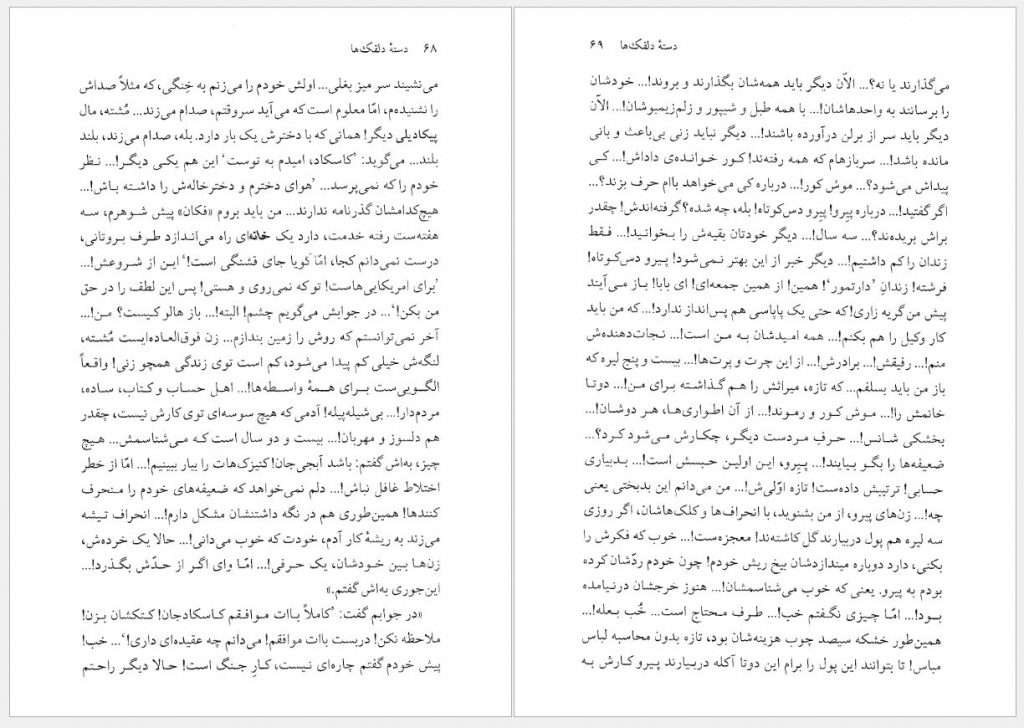 ۶۸ دستهٔ دلقک‌ها
می‌نشیند سر میز بغلی... اولش خودم را می‌زنم به خِنگی، که مثلاً صداش
را نشنیده‌م، امّا معلوم است که می‌آید سروقتم، صدام می‌زند... مُشته، مال
پیکادیلی دیگر! همانی که با دخترش یک بار دارد. بله، صدام می‌زند، بلند
بلند... می‌گوید: ’کاسکاد، امیدم به توست‘ این هم یکی دیگر!... نظر
خودم را که نمی‌پرسد... ’هوای دخترم و دخترخاله‌ش را داشته باش!...
هیچ‌کدامشان گذرنامه ندارند... من باید بروم «فکان» پیش شوهرم، سه
هفته‌ست رفته خدمت، دارد یک خانه‌ای راه می‌اندازد طرف بروتانی،
درست نمی‌دانم کجا، امّا گویا جای قشنگی است!‘ این از شروعش!...
’برای امریکایی‌هاست! تو که نمی‌روی و هستی! پس این لطف را در حق
من بکن!‘... در جوابش می‌گویم چشم! البته!... باز هالو کیست؟ من!...
آخر نمی‌توانستم که روش را زمین بندازم... زن فوق‌العاده‌ایست مُشته،
لنگه‌ش خیلی کم پیدا می‌شود، کم است توی زندگی همچو زنی! واقعاً
الگویی‌ست برای همهٔ واسطه‌ها!... اهل حساب و کتاب، ساده،
مردم‌دار!... بی‌شیله‌پیله! آدمی که هیچ سوسه‌ای توی کارش نیست، چقدر
هم دلسوز و مهربان!... بیست و دو سال است که می‌شناسمش... هیچ
چیز، به‌اش گفتم: باشد آبجی‌جان! کنیزک‌هات را بیار ببینیم!... امّا از خطر
اختلاط غافل نباش!... دلم نمی‌خواهد که ضعیفه‌های خودم را منحرف
کنندها! همین‌طوری هم در نگه داشتنشان مشکل دارم!... انحراف تیشه
می‌زند به ریشهٔ کار آدم، خودت که خوب می‌دانی!... حالا یک خرده‌ش،
زن‌ها بین خودشان، یک حرفی!... امّا وای اگر از حدّش بگذرد!...
این‌جوری به‌اش گفتم.»
«در جوابم گفت: ’کاملاً باات موافقم کاسکادجان! کتکشان بزن!
ملاحظه نکن! دربست باات موافقم! می‌دانم چه عقیده‌ای داری!‘... خب!
پیش خودم گفتم چاره‌ای نیست، کارِ جنگ است! حالا دیگر راحتم
دستهٔ دلقک‌ها ۶۹
می‌گذارند یا نه؟... الآن دیگر باید همه‌شان بگذارند و بروند!... خودشان
را برسانند به واحدهاشان!... با همه طبل و شیپور و زلم‌زیمبوشان!... الآن
دیگر باید سر از برلن درآورده باشند!... دیگر نباید زنی بی‌باعث و بانی
مانده باشد!... سربازهام که همه رفته‌ند! کور خوانده‌ی داداش!... کی
پیداش می‌شود؟... موش کور!... درباره کی می‌خواهد باام حرف بزند؟...
اگر گفتید!... درباره پیِرو! پیِرو دس‌کوتاه! بله، چه شده؟ گرفته‌اندش! چقدر
براش بریده‌ند؟... سه سال!... دیگر خودتان بقیه‌ش را بخوانید!... فقط
زندان را کم داشتیم!... دیگر خبر از این بهتر نمی‌شود! پیرو دس‌کوتاه!
فرشته! زندانِ ’دارتمور‘! همین! از همین جمعه‌ای! ای بابا! باز می‌آیند
پیش من گریه زاری! که حتی یک پاپاسی هم پس‌انداز ندارد!... که من باید
کار وکیل را هم بکنم!... همه امیدشان به من است!... نجات‌دهنده‌ش
منم! رفیقش! برادرش!... از این چرت و پرت‌ها!... بیست و پنج لیره که
باز من باید بسلفم... که تازه، میراثش را هم گذاشته برای من!... دوتا
خانمش را!... موش کور و رموند!... از آن اطواری‌ها، هر دوشان!...
بخشکی شانس!... حرفِ مردست دیگر، چکارش می‌شود کرد؟...
ضعیفه‌ها را بگو بیایند!... پیِرو، این اولین حبسش است!... بدبیاری
حسابی! ترتیبش داده‌ست! تازه اوّلی‌ش!... من می‌دانم این بدبختی یعنی
چه!... زن‌های پیرو، از من بشنوید، با انحراف‌ها و کلک‌هاشان، اگر روزی
سه لیره هم پول دربیارند گل کاشته‌ند! معجزه‌ست!... خوب که فکرش را
بکنی، دارد دوباره میندازدشان بیخ ریش خودم! چون خودم ردّشان کرده
بودم به پیرو. یعنی که خوب می‌شناسمشان!... هنوز خرجشان درنیامده
بود!... امّا چیزی نگفتم خب!... طرف محتاج است... خُب بعله!...
همین‌طور خشکه سیصد چوب هزینه‌شان بود، تازه بدون محاسبه لباس
مباس! تا بتوانند این پول را برام این دوتا آکله دربیارند پیرو کارش به